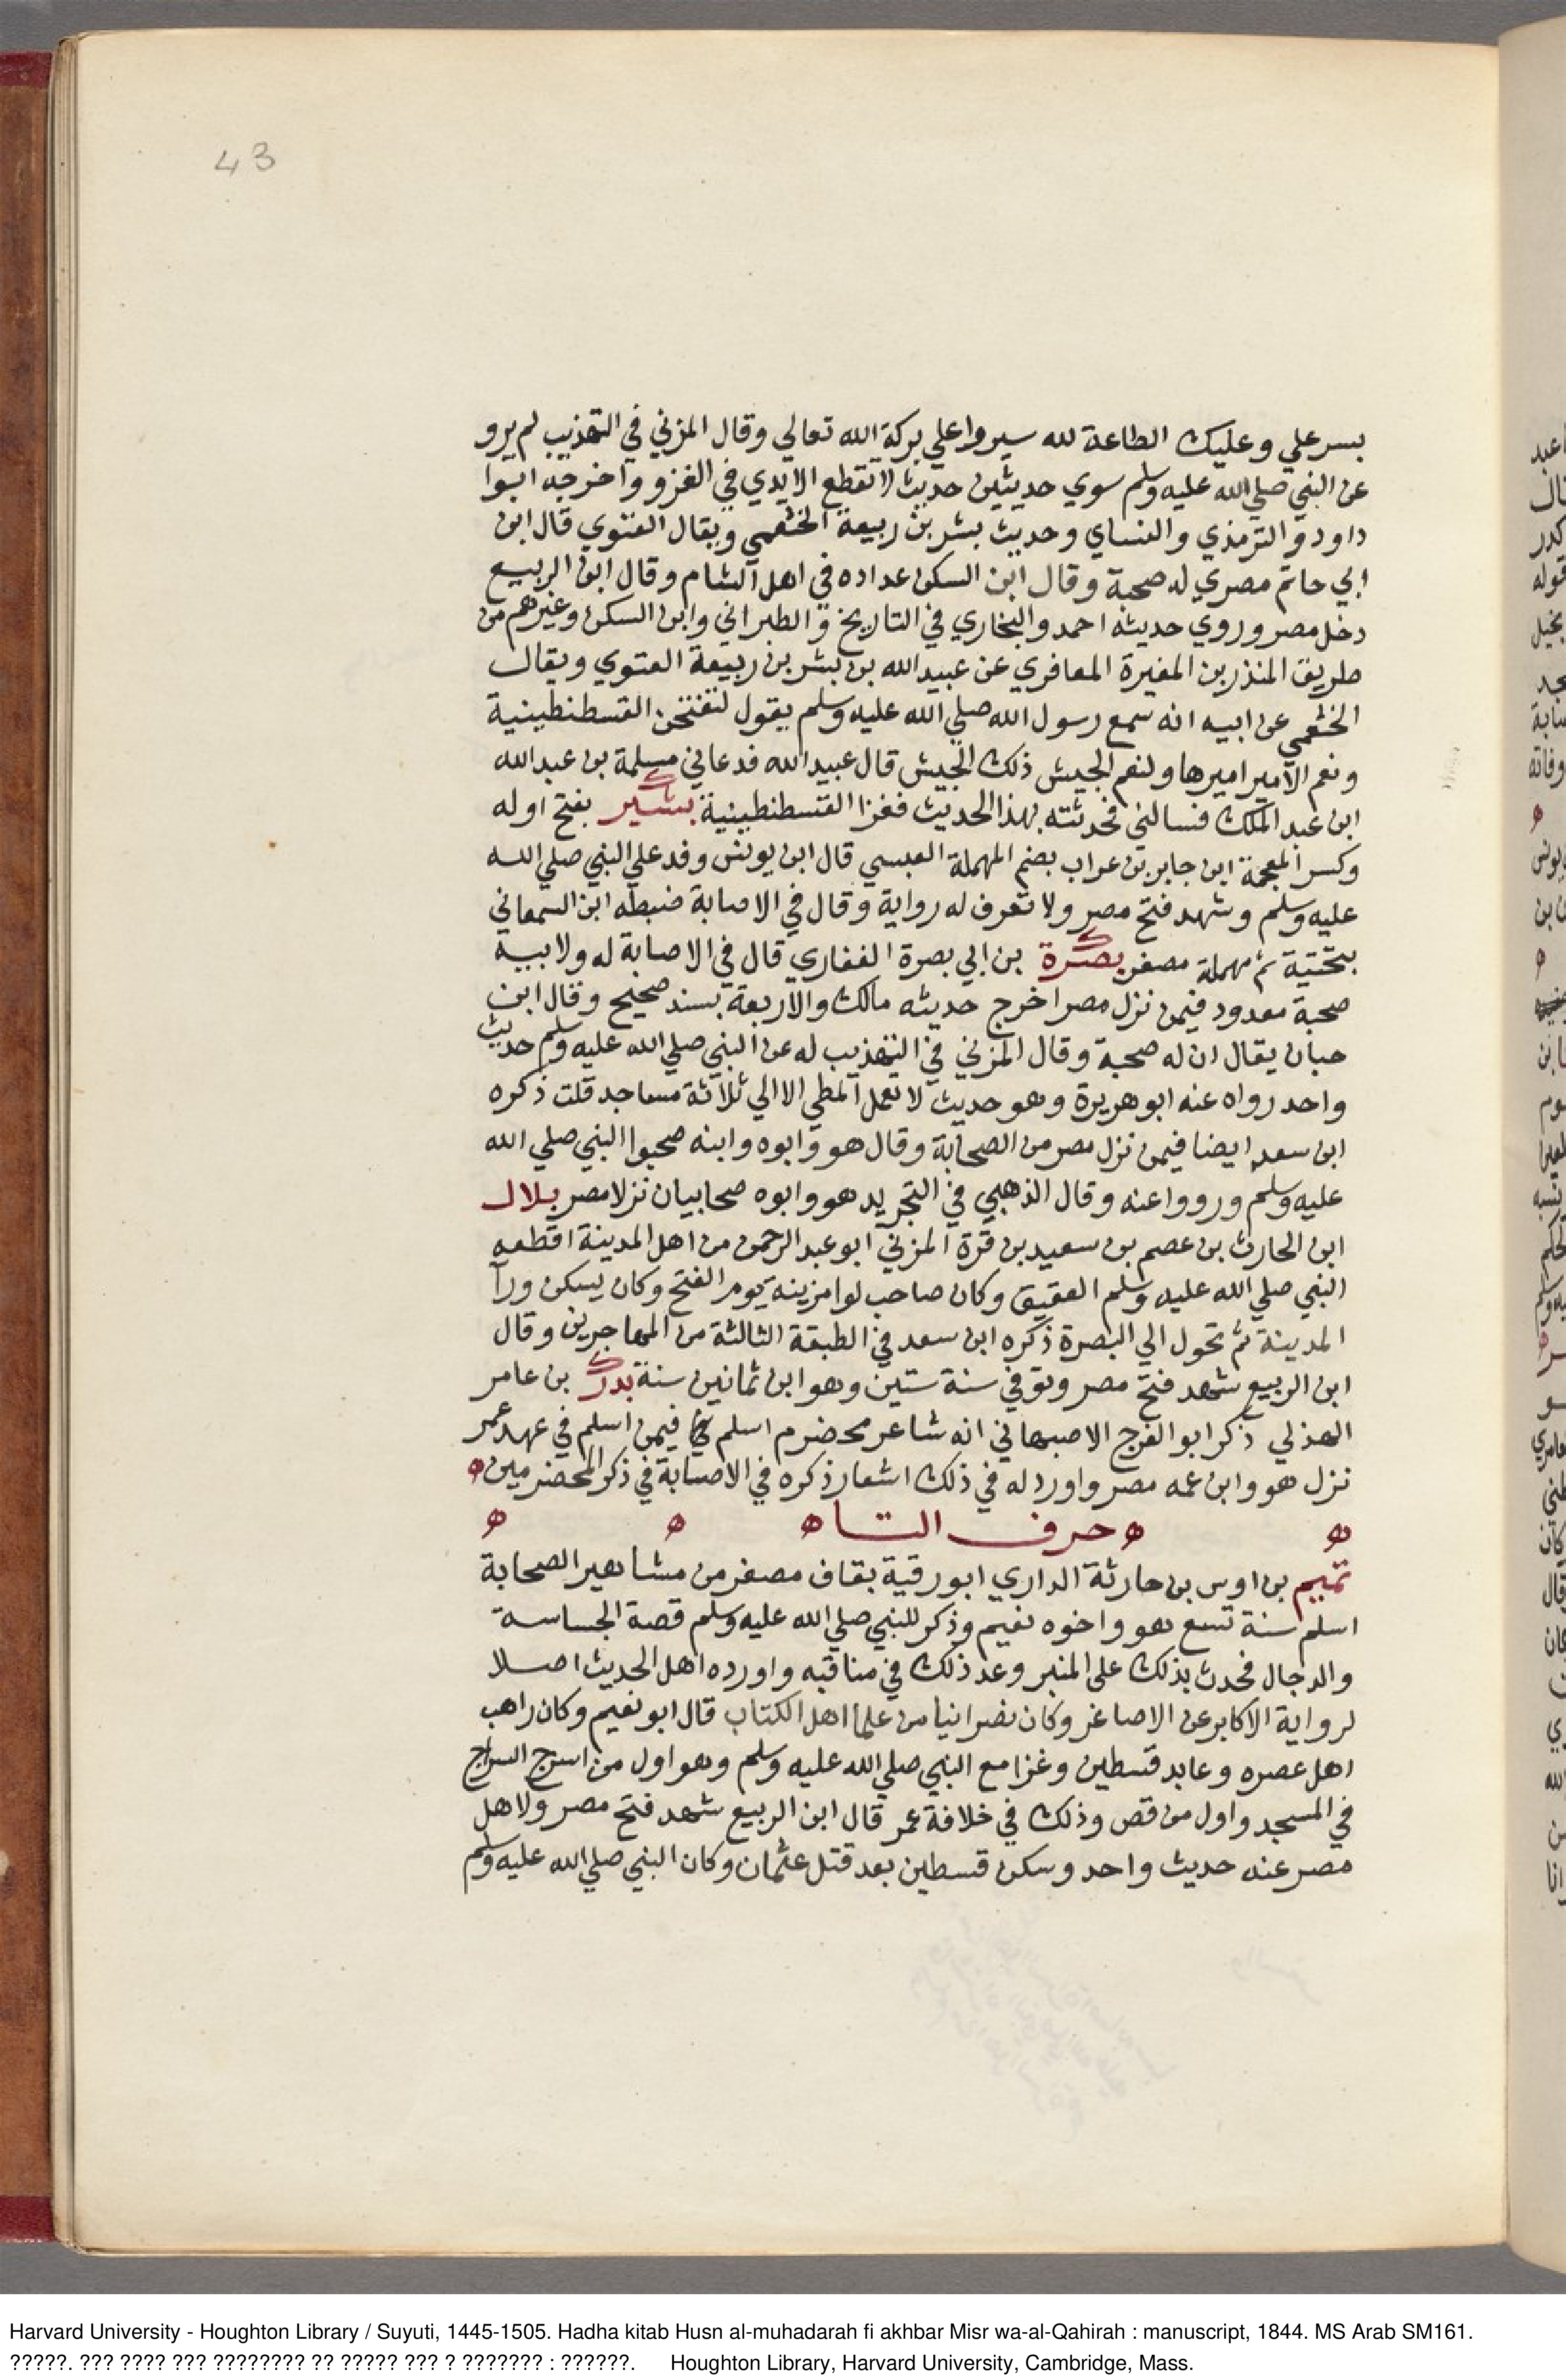 43
بسر علي وعليك الطاعة لله سيروا علي بركة الله تعالي وقال المزني في التهذيب لم يرو
عن النبي صلي الله عليه وسلم سوي حديثين حديث لا تقطع الايدي في الغزو واخرجه ابوا
داود والترمذي والنساي وحديث بشر بن ربيعة الخثعمي ويقال الغنوي قال ابن
ابي حاتم مصري له صحبة وقال ابن السكن عداده في اهل الشام وقال ابن الربيع
دخل مصر وروي حديثه احمد والبخاري في التاريخ والطبراني وابن السكن وغيرهم من
طريق المنذر بن المغيرة المعافري عن عبيد الله بن بشر بن ربيعة الغنوي ويقال
الخثعمي عن ابيه انه سمع رسول الله صلي الله عليه وسلم يقول لتفتحن القسطنطينية
ونعم الامير اميرها ولنعم الجيش ذلك الجيش قال عبيد الله فدعاني مسلمة بن عبد الله
ابن عبد الملك فسالني فحدثته بهذا الحديث فغزا القسطنطينية بشير بفتح اوله
وكسر المعجمة ابن جابر بن عراب بضم المهملة العبسي قال ابن يونس وفد علي النبي صلي الله
عليه وسلم وشهد فتح مصر ولا تعرف له رواية وقال في الاصابة ضبطه ابن السمعاني
بتحتية ثم مهملة مصغر بصرة بن ابي بصرة الغفاري قال في الاصابة له ولابيه
صحبة معدود فيمن نزل مصر اخرج حديثه مالك والاربعة بسند صحيح وقال ابن
حبان يقال ان له صحبة وقال المزني في التهذيب له عن النبي صلي الله عليه وسلم حديث
واحد رواه عنه ابو هريرة وهو حديث لا تعمل المطي الا الي ثلاثة مساجد قلت ذكره
ابن سعد ايضا فيمن نزل مصر من الصحابة وقال هو وابوه وابنه صحبوا النبي صلي الله
عليه وسلم ورووا عنه وقال الذهبي في التجريد هو وابوه صحابيان نزلا مصر بلال
ابن الحارث بن عصم بن سعيد بن قرة المزني ابو عبد الرحمن من اهل المدينة اقطعه
النبي صلي الله عليه وسلم العقيق وكان صاحب لوا مزينة يوم الفتح وكان يسكن ورآ
المدينة ثم تحول الي البصرة ذكره ابن سعد في الطبقة الثالثة من المهاجرين وقال
ابن الربيع شهد فتح مصر وتوفي سنة ستين وهو ابن ثمانين سنة بدر بن عامر
الهذلي ذكر ابو الفرج الاصبهاني انه شاعر مخضرم اسلم فيمن اسلم في عهد عمر
نزل هو وابن عمه مصر واورد له في ذلك اشعار ذكره في الاصابة في ذكر المخضرمين ه
ه ه حرف التا ه ه ه
تميم بن اوس بن حارثة الداري ابو رقية بقاف مصغر من مشاهير الصحابة
اسلم سنة تسع هو واخوه نعيم وذكر للنبي صلي الله عليه وسلم قصة الجساسة
والدجال فحدث بذلك على المنبر وعد ذلك في مناقبه واورده اهل الحديث اصلا
لرواية الاكابر عن الاصاغر وكان نصرانيا من علما اهل الكتاب قال ابو نعيم وكان راهب
اهل عصره وعابد قسطين وغزا مع النبي صلي الله عليه وسلم وهو اول من اسرج السراج
في المسجد واول من قص وذلك في خلافة عمر قال ابن الربيع شهد فتح مصر ولاهل
مصر عنه حديث واحد وسكن قسطين بعد قتل عثمان وكان النبي صلي الله عليه وسلم
Harvard University - Houghton Library / Suyuti, 1445-1505. Hadha kitab Husn al-muhadarah fi akhbar Misr wa-al-Qahirah : manuscript, 1844. MS Arab SM161.
?????. ??? ???? ??? ???????? ?? ????? ??? ? ??????? : ??????. Houghton Library, Harvard University, Cambridge, Mass.